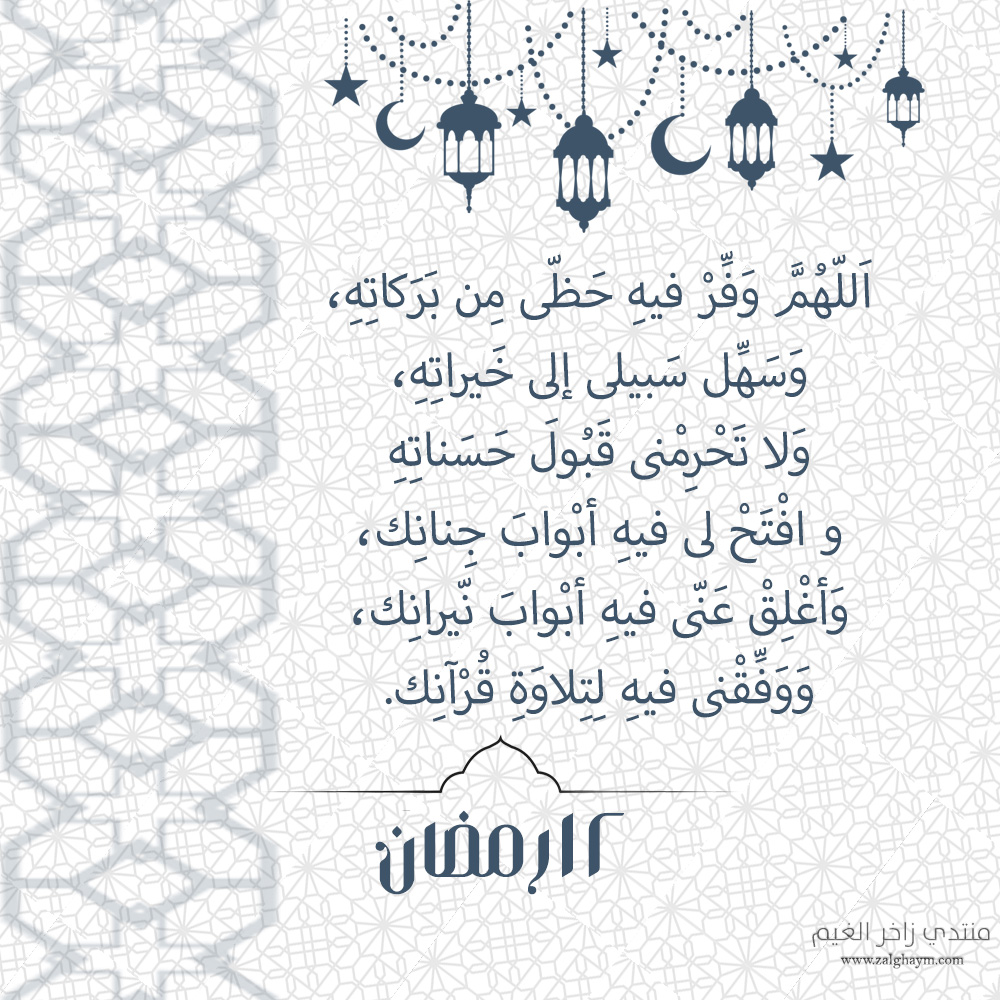 اَللّهُمَّ وَفِّرْ فيهِ حَظّى مِن بَرَكاتِهِ،
وَسَهِّل سَبيلى إلى خَيراتِهِ،
وَلا تَحْرِمْنى قَبُولَ حَسَناتِهِ
و افْتَحْ لى فيهِ أبْوابَ جِنانِك،
وَأغْلِقْ عَنّى فيهِ أبْوابَ نّيرانِك،
وَوَفِّقْنى فيهِ لِتِلاوَةِ قُرْآنِك.
١٢رمضان
منتدي زاخر الغيم
www.zalghaym.com